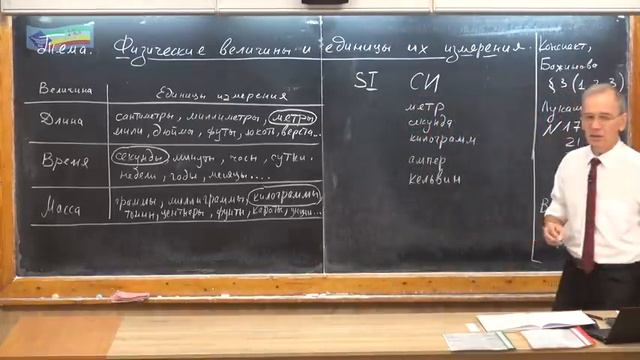 Тема. Физические величины и единицы их измерения.
Величина Единицы измерения
Длина сантиметры, миллиметры, метры
мили, дюймы, футы, локоть, верста...
Время секунды минуты, часы, сутки.
недели, годы, месяцы....
Масса граммы, миллиграммы, килограммы
тонны, центнеры, фунты, караты, унции...
SI СИ
метр
секунда
килограмм
ампер
кельвин
Конспект,
Божинова
§ 3 (1, 2, 3)
Лукаш
N 17